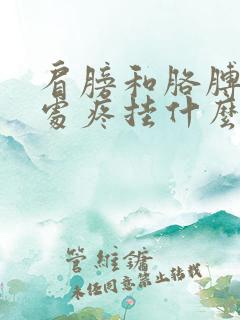 肩膀和胳膊
处疼挂什么
管維鏞
未经同意禁止转载